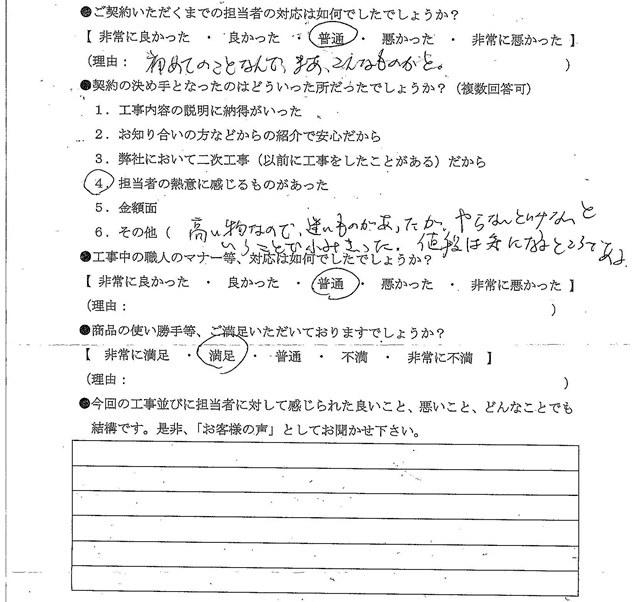 ●ご契約いただくまでの担当者の対応は如何でしたでしょうか？
【 非常に良かった ・ 良かった ・ 普通 ・ 悪かった ・ 非常に悪かった 】
（理由： 初めてのことなんで、まあ、こんなものかと。 ）
●契約の決め手となったのはどういった所だったでしょうか？（複数回答可）
１．工事内容の説明に納得がいった
２．お知り合いの方などからの紹介で安心だから
３．弊社において二次工事（以前に工事をしたことがある）だから
４．担当者の熱意に感じるものがあった
５．金額面
６．その他（ 高い物なので、迷いものがあったが、やらないといけないと
いうことでふみきった。値段は気になるところである
●工事中の職人のマナー等、対応は如何でしたでしょうか？
【 非常に良かった ・ 良かった ・ 普通 ・ 悪かった ・ 非常に悪かった 】
（理由： ）
●商品の使い勝手等、ご満足いただいておりますでしょうか？
【 非常に満足 ・ 満足 ・ 普通 ・ 不満 ・ 非常に不満 】
（理由： ）
●今回の工事並びに担当者に対して感じられた良いこと、悪いこと、どんなことでも
結構です。是非、「お客様の声」としてお聞かせ下さい。